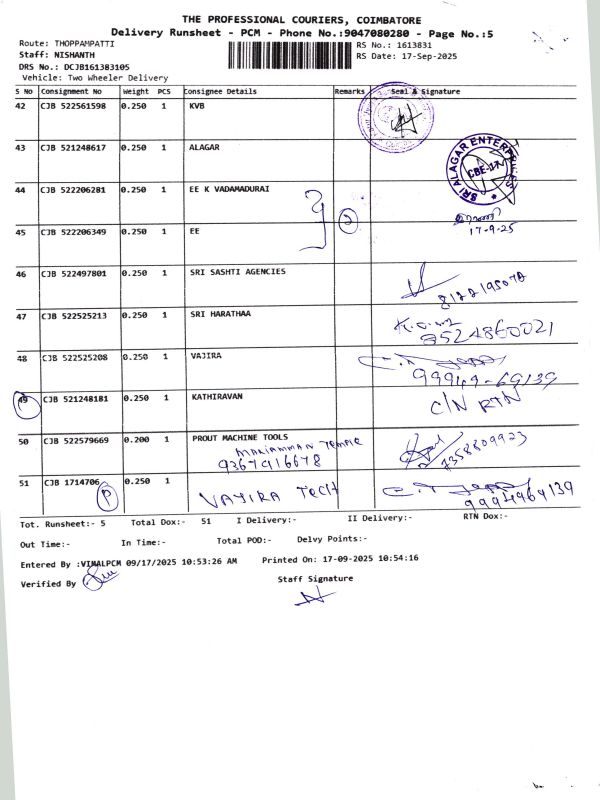 THE PROFESSIONAL COURIERS, COIMBATORE
Delivery Runsheet - PCM - Phone No.:9047080280 - Page No.:5
Route: THOPPAMPATTI
RS No.: 1613831
Staff: NISHANTH
RS Date: 17-Sep-2025
DRS No.: DCJB161383105
Vehicle: Two Wheeler Delivery
S No Consignment No Weight PCS Consignee Details Remarks Seal & Signature
42 CJB 522561598 0.250 1 KVB
43 CJB 521248617 0.250 1 ALAGAR
SRI ALAGAR ENTERPRISES
CBE-17
44 CJB 522206281 0.250 1 EE K VADAMADURAI
17-9-25
45 CJB 522206349 0.250 1 EE
2
46 CJB 522497801 0.250 1 SRI SASHTI AGENCIES
8122195078
47 CJB 522525213 0.250 1 SRI HARATHAA
8524860021
48 CJB 522525208 0.250 1 VAJIRA
99949-69139
49 CJB 521248181 0.250 1 KATHIRAVAN C/N RTN
50 CJB 522579669 0.200 1 PROUT MACHINE TOOLS
MARIAMMAN TEMPLE
9367916678
7358809923
51 CJB 1714706 0.250 1 VAJIRA TECH
P
9994969139
Tot. Runsheet:- 5 Total Dox:- 51 I Delivery:- II Delivery:- RTN Dox:-
Out Time:- In Time:- Total POD:- Delvy Points:-
Entered By :VIMALPCM 09/17/2025 10:53:26 AM Printed On: 17-09-2025 10:54:16
Verified By Staff Signature